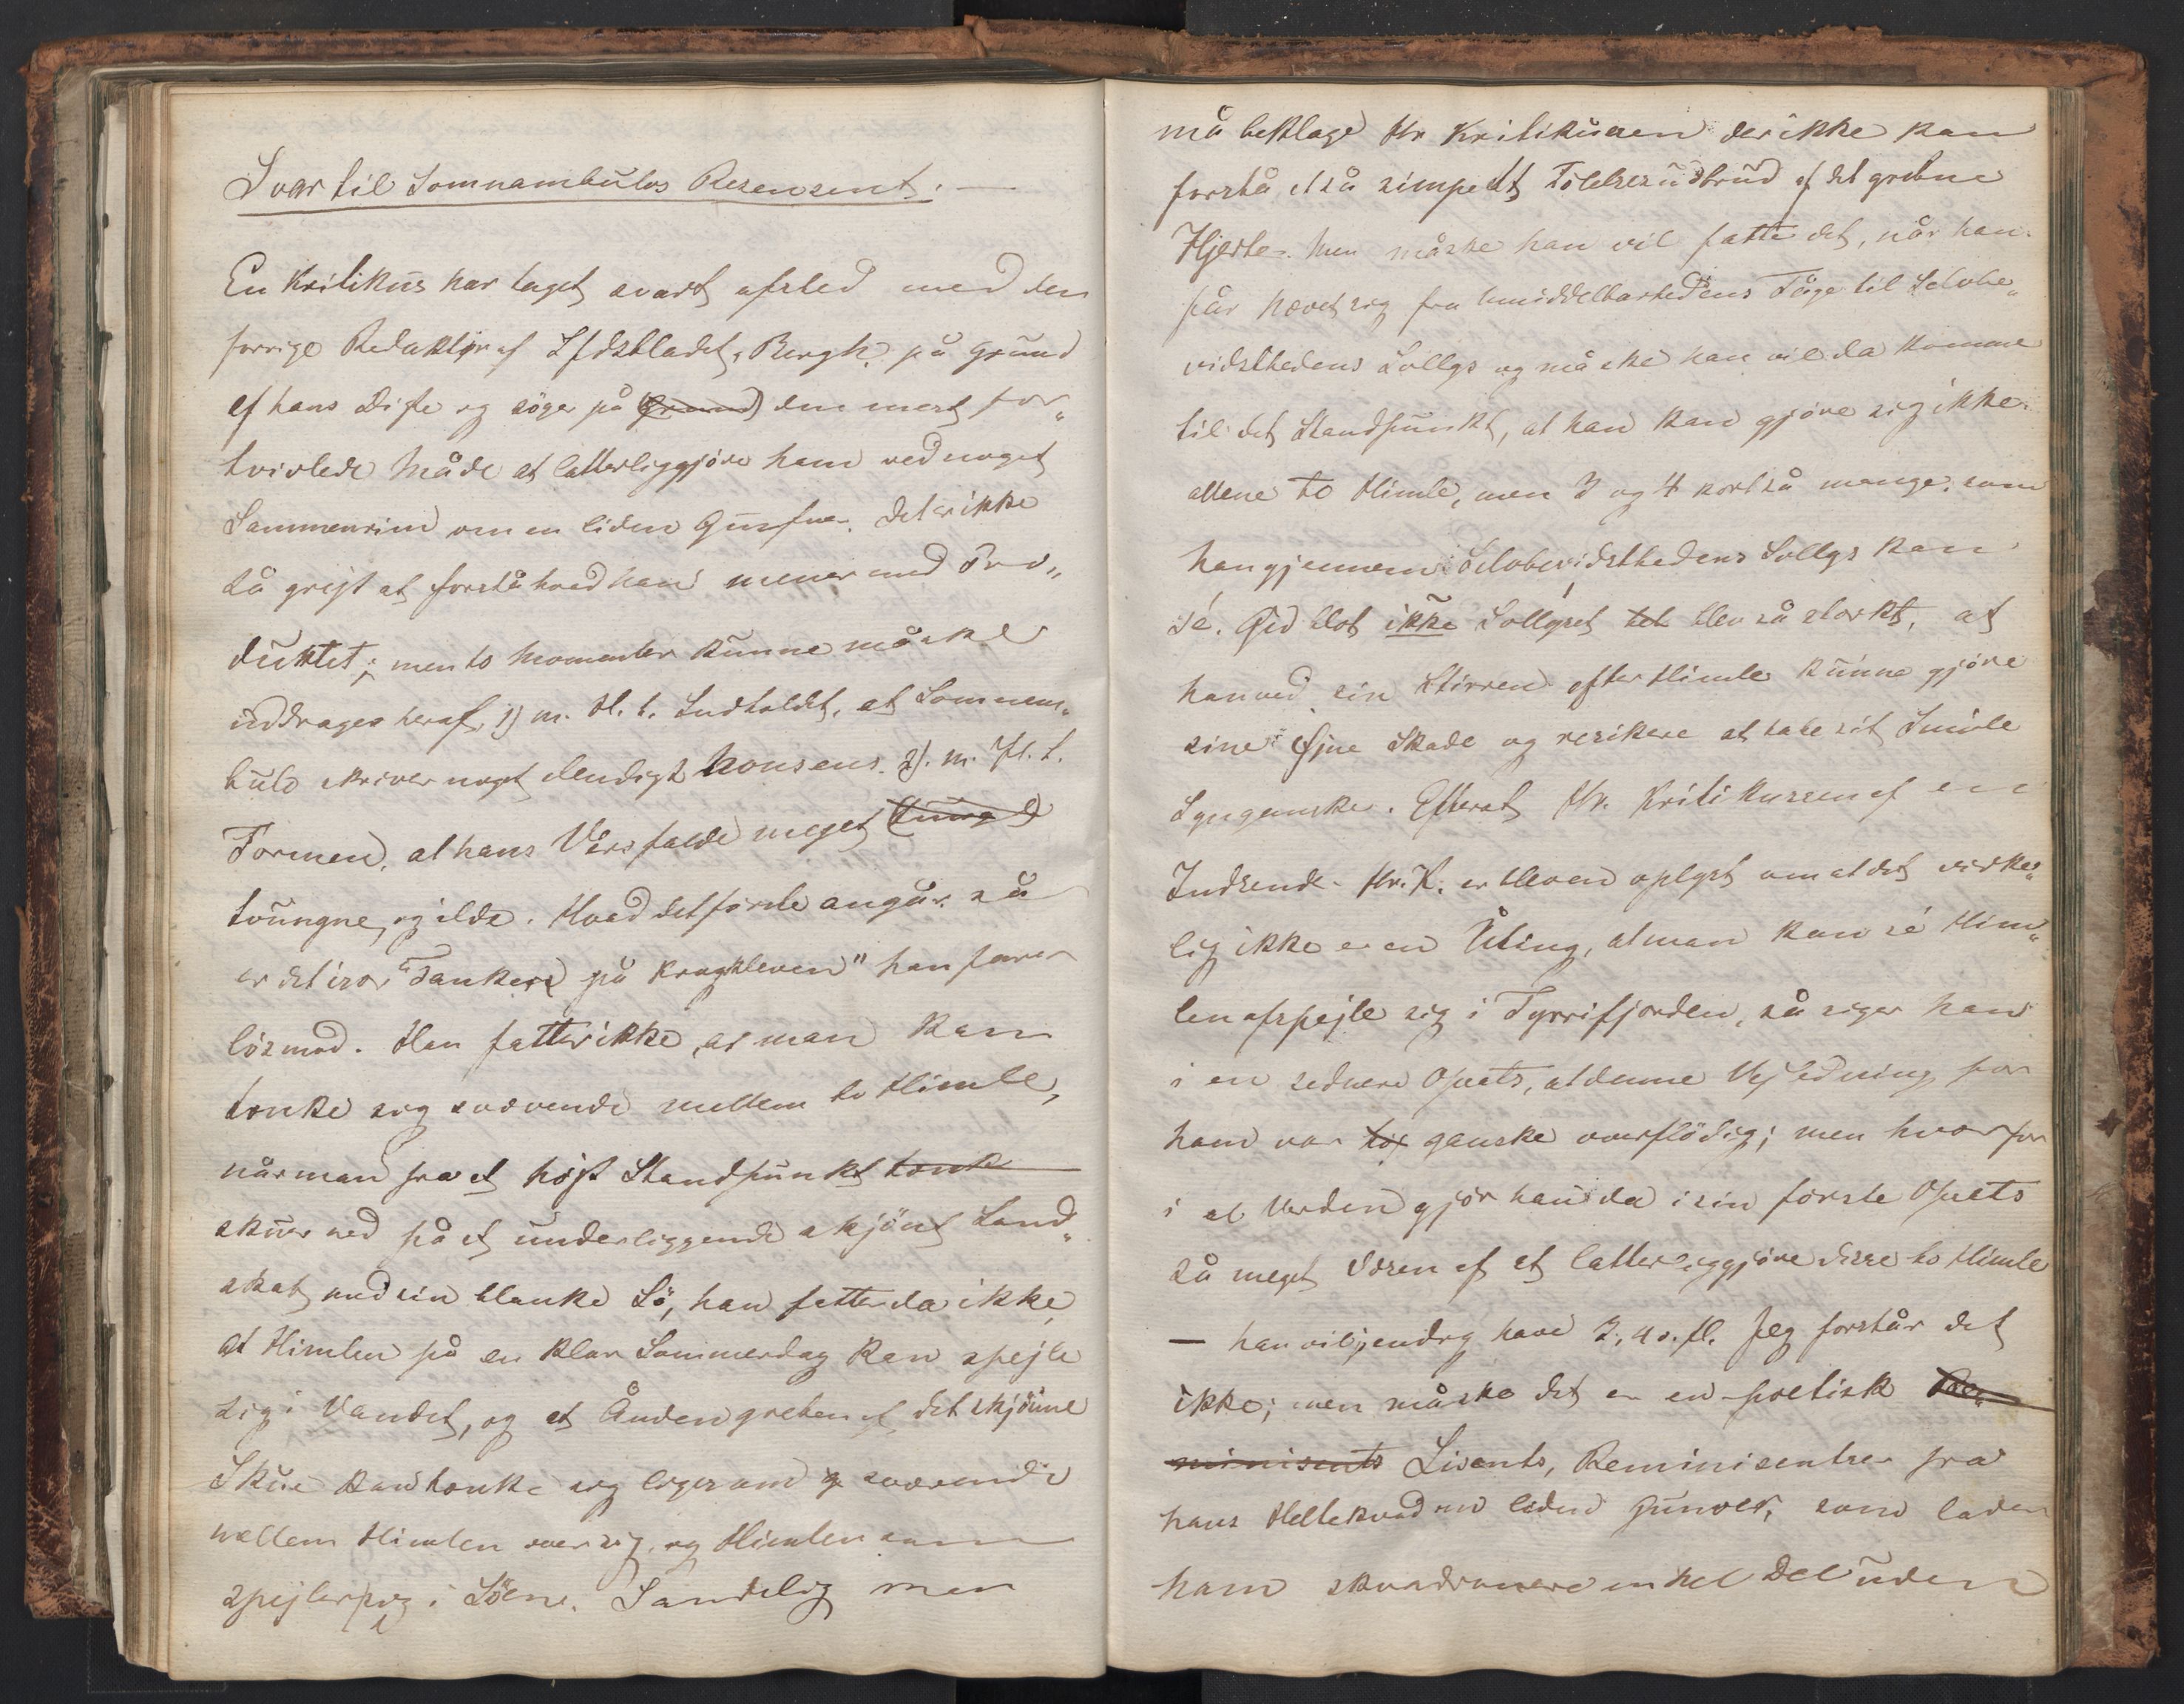 Svar til Somnambulos Resensent. —
En Kritikus har taget svært afsted med den
forrige Redaktör af Sfdsbladet, Bergh, på Grund
af hans Digte og söger på Grund den mest for„
tvivlede Måde at latterliggjöre ham ved noget
Sammenrim om en liden Gunver. Det er ikke
så greijt at forstå hvad han mener med Pro„
duktet; men to Momenter kunne måske
uddrages heraf, 1) m. H. t. Indholdet, at Somnam„
bulo skriver noget elendigt Nonsens. 2). m. H. t.
Formen, at hans Vers falde meget tunge
tvungne og ilde. Hvad det förste angår, så
er det især "Tankere på Krogkleven" han farer
lös mod. Han fatter ikke, at man kan
tænke sig svævende mellem to Himle,
når man fra et höjt Standpunkt tænk
skuer ned på et underliggende skjönt Land„
skab med sin blanke Sö, han fatter da ikke,
at Himlen på en klar Sommerdag kan spejle
sig i Vandet, og at Ånden greben af det skjönne
Skue kan tænke sig ligesom svævende
mellem Himlen over sig og Himlen som
spejler sig i Söene. Sandelig man
må beklage Hr Kritikusen der ikke kan
forstå et så simpelt Fölelsesudbrud af det grebne
Hjerte. Men måske han vil fatte det, når han
får hævet sig fra Umiddelbarhedens Tåge til Selvbe„
vidsthedens Sollys og måske han vil da komme
til det Standpunkt, at han kan gjöre sig ikke
allene to Himle, men 3 og 4 kort så mange, som
han gjennem Selvbevidsthedens Sollys kan
sé. Gid blot ikke Sollyset blev så stærkt, at
han ved sin Stirren efter Himle kunne gjöre
sine Öjne Skade og resikere at tabe sit Smule
Synganske. Efterat Hr. Kritikussen af en
Indsende Hr. K. er bleven oplyst om at det virke„
lig ikke er en Uting, at man kan sé Him„
len afspejle sig i Tyrrifjorden, så siger han
i en sednere Opsats, at denne Vejledning for
ham var ganske overflödig; men hvorfor
i al Verden gjör han da i sin förste Opsats
så meget Væsen af at latterliggjöre disse to Himle
— han vil jendog have 3, 4 o. fl. Jeg forstår det
ikke; men måske det er en poetisk Re„
minisents Lisents, Reminisentser fra
hans Heltekvad om liden Gunver, som lader
ham skvadronere en hel Del uden